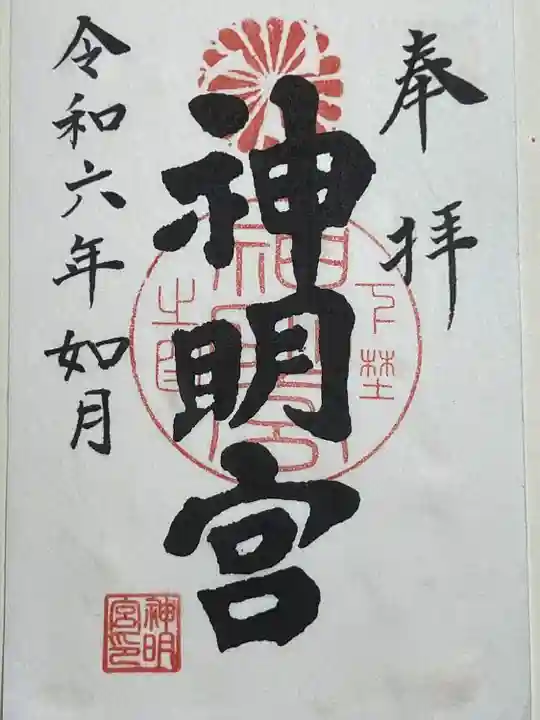 奉拝
神明宮
下埜
神明宮
之印
令和六年如月
神明
宮印